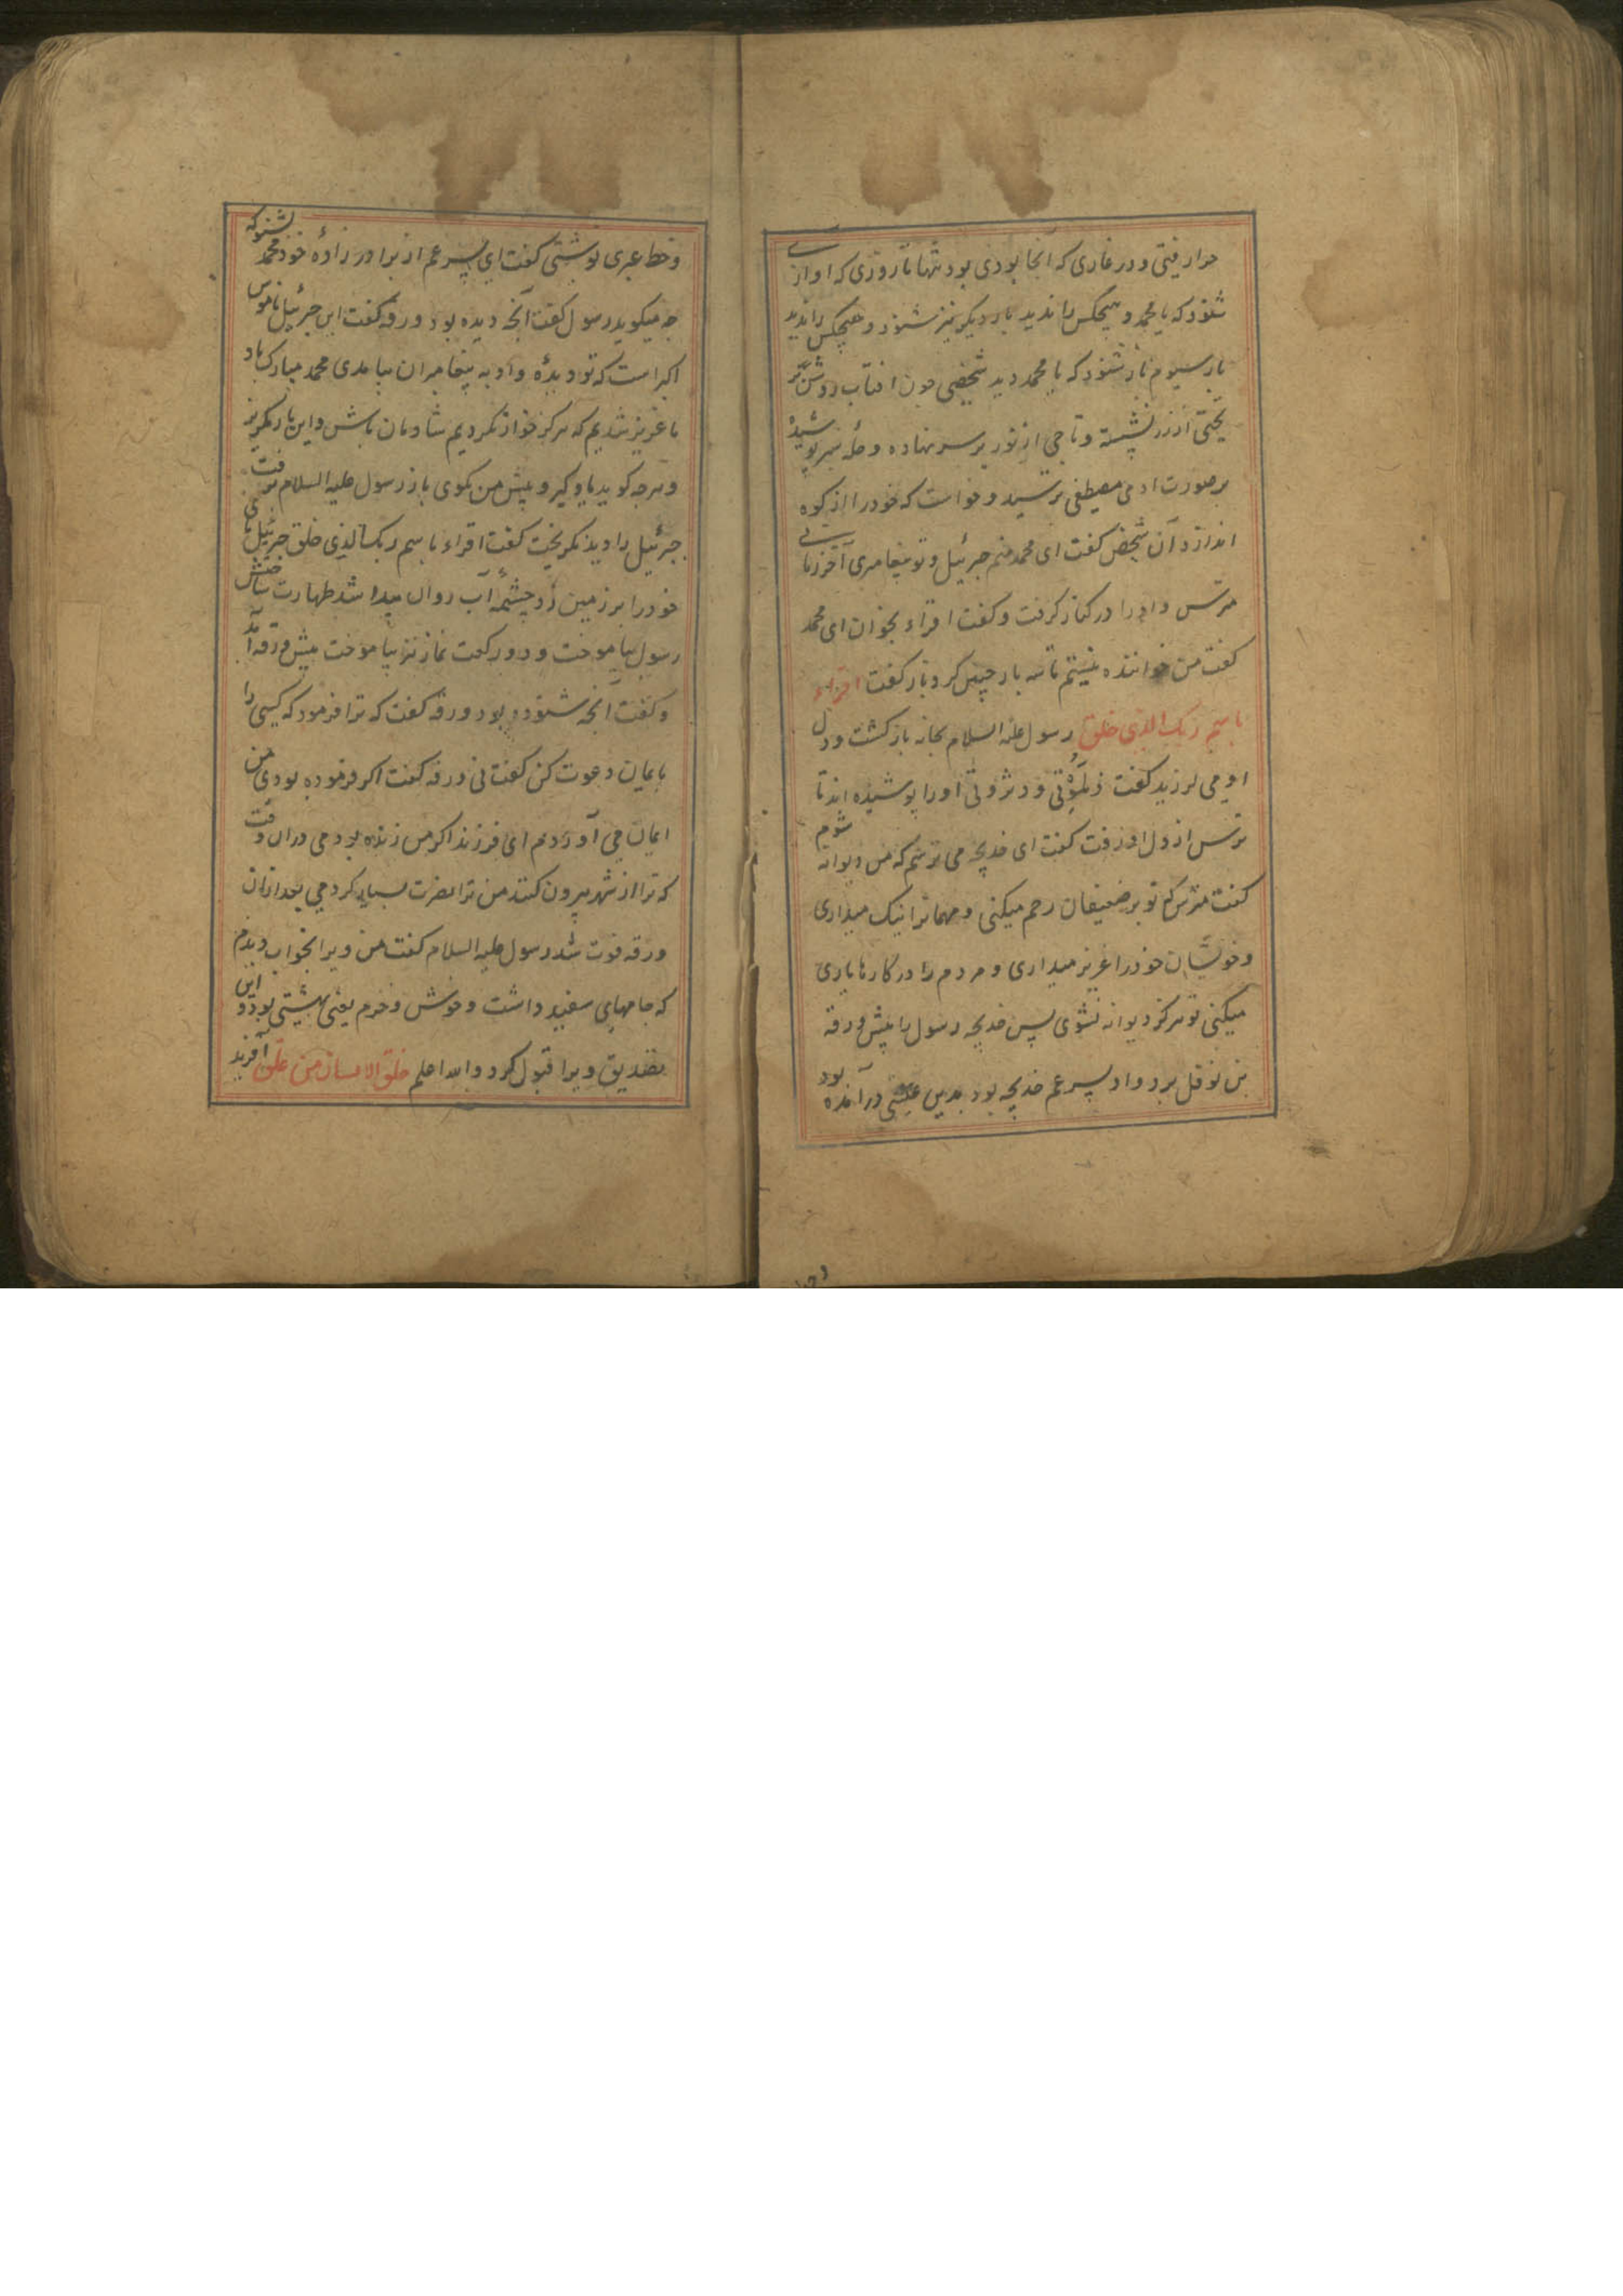 حرا رفتی و در غاری که آنجا بودی بود تنها تا روزی که اواز
شنود که یا محمد و هیچکس را ندید بار دیکر نیز شنود و هیچکس را ندید
بار سیوم باز شنود که یا محمد دید شخصی چون افتاب روشن بر
تختی از زر نشسته و تاجی از نور بر سر نهاده و حله سبز پوشیده
بر صورت ادمی مصطفی بترسید و خواست که خود را از کوه
اندازد آن شخص کفت ای محمد منم جبرئیل و تو پیغامبری آخر زمانی
مترس و او را در کنار کرفت و کفت اقراء بخوان ای محمد
کفت من خواننده نیستم تا سه بار چنین کرد باز کفت اقراء
باسم ربک الذی خلق رسول علیه السلام بخانه باز کشت و دل
او می لرزید کفت زملونی و دثرونی او را پوشیده اند تا
ترس از دل او رفت کفت ای خدیجه می ترسم که من دیوانه شوم
کفت مترس که تو بر ضعیفان رحم میکنی و مهمانرا نیک میداری
و خویشان خود را عزیز میداری و مردم را در کارها یاری
میکنی تو هرکز دیوانه نشوی پس خدیجه رسول را پیش ورقه
بن نوفل برد و او پسر عم خدیجه بود بدین عیسی درآمده بود
و خط عبری نوشتی کفت ای پسر عم از برادر زادۀ خود محمد بشنو که
چه میکوید رسول کفت آنچه دیده بود ورقه کفت این جبرئیل ناموس
اکبر است که تو دیدۀ و او به پیغامبران بیامدی محمد مبارک باد
ما عزیز شدیم که هرکز خوار نکردیم شادمان باش و این بار مکریز
و هرچه کوید یاد کیر و پیش من بکوی باز رسول علیه السلام برفت
جبرئیل را دید نکریخت کفت اقراء باسم ربک الذی خلق جبرئیل پای
خود را بر زمین زد چشمۀ آب روان پیدا شد طهارت ساختن
رسول بیاموخت و دو رکعت نماز نیز بیاموخت پیش ورقه آمد
و کفت آنچه شنوده بود ورقه کفت که ترا فرمود که کسی را
بایمان دعوت کن کفت نی ورقه کفت اکر فرموده بودی من
ایمان می آوردم ای فرزند اکر من زنده بودمی دران وقت
که ترا از شهر بیرون کنند من ترا نصرت بسیار کردمی بعد ازان
ورقه فوت شد رسول علیه السلام کفت من ویرا بخواب دیدم
که جامهای سفید داشت و خوش و خرم یعنی بهشتی بود و این
تصدیق ویرا قبول کرد والله اعلم خلق الانسان من علق آفرید